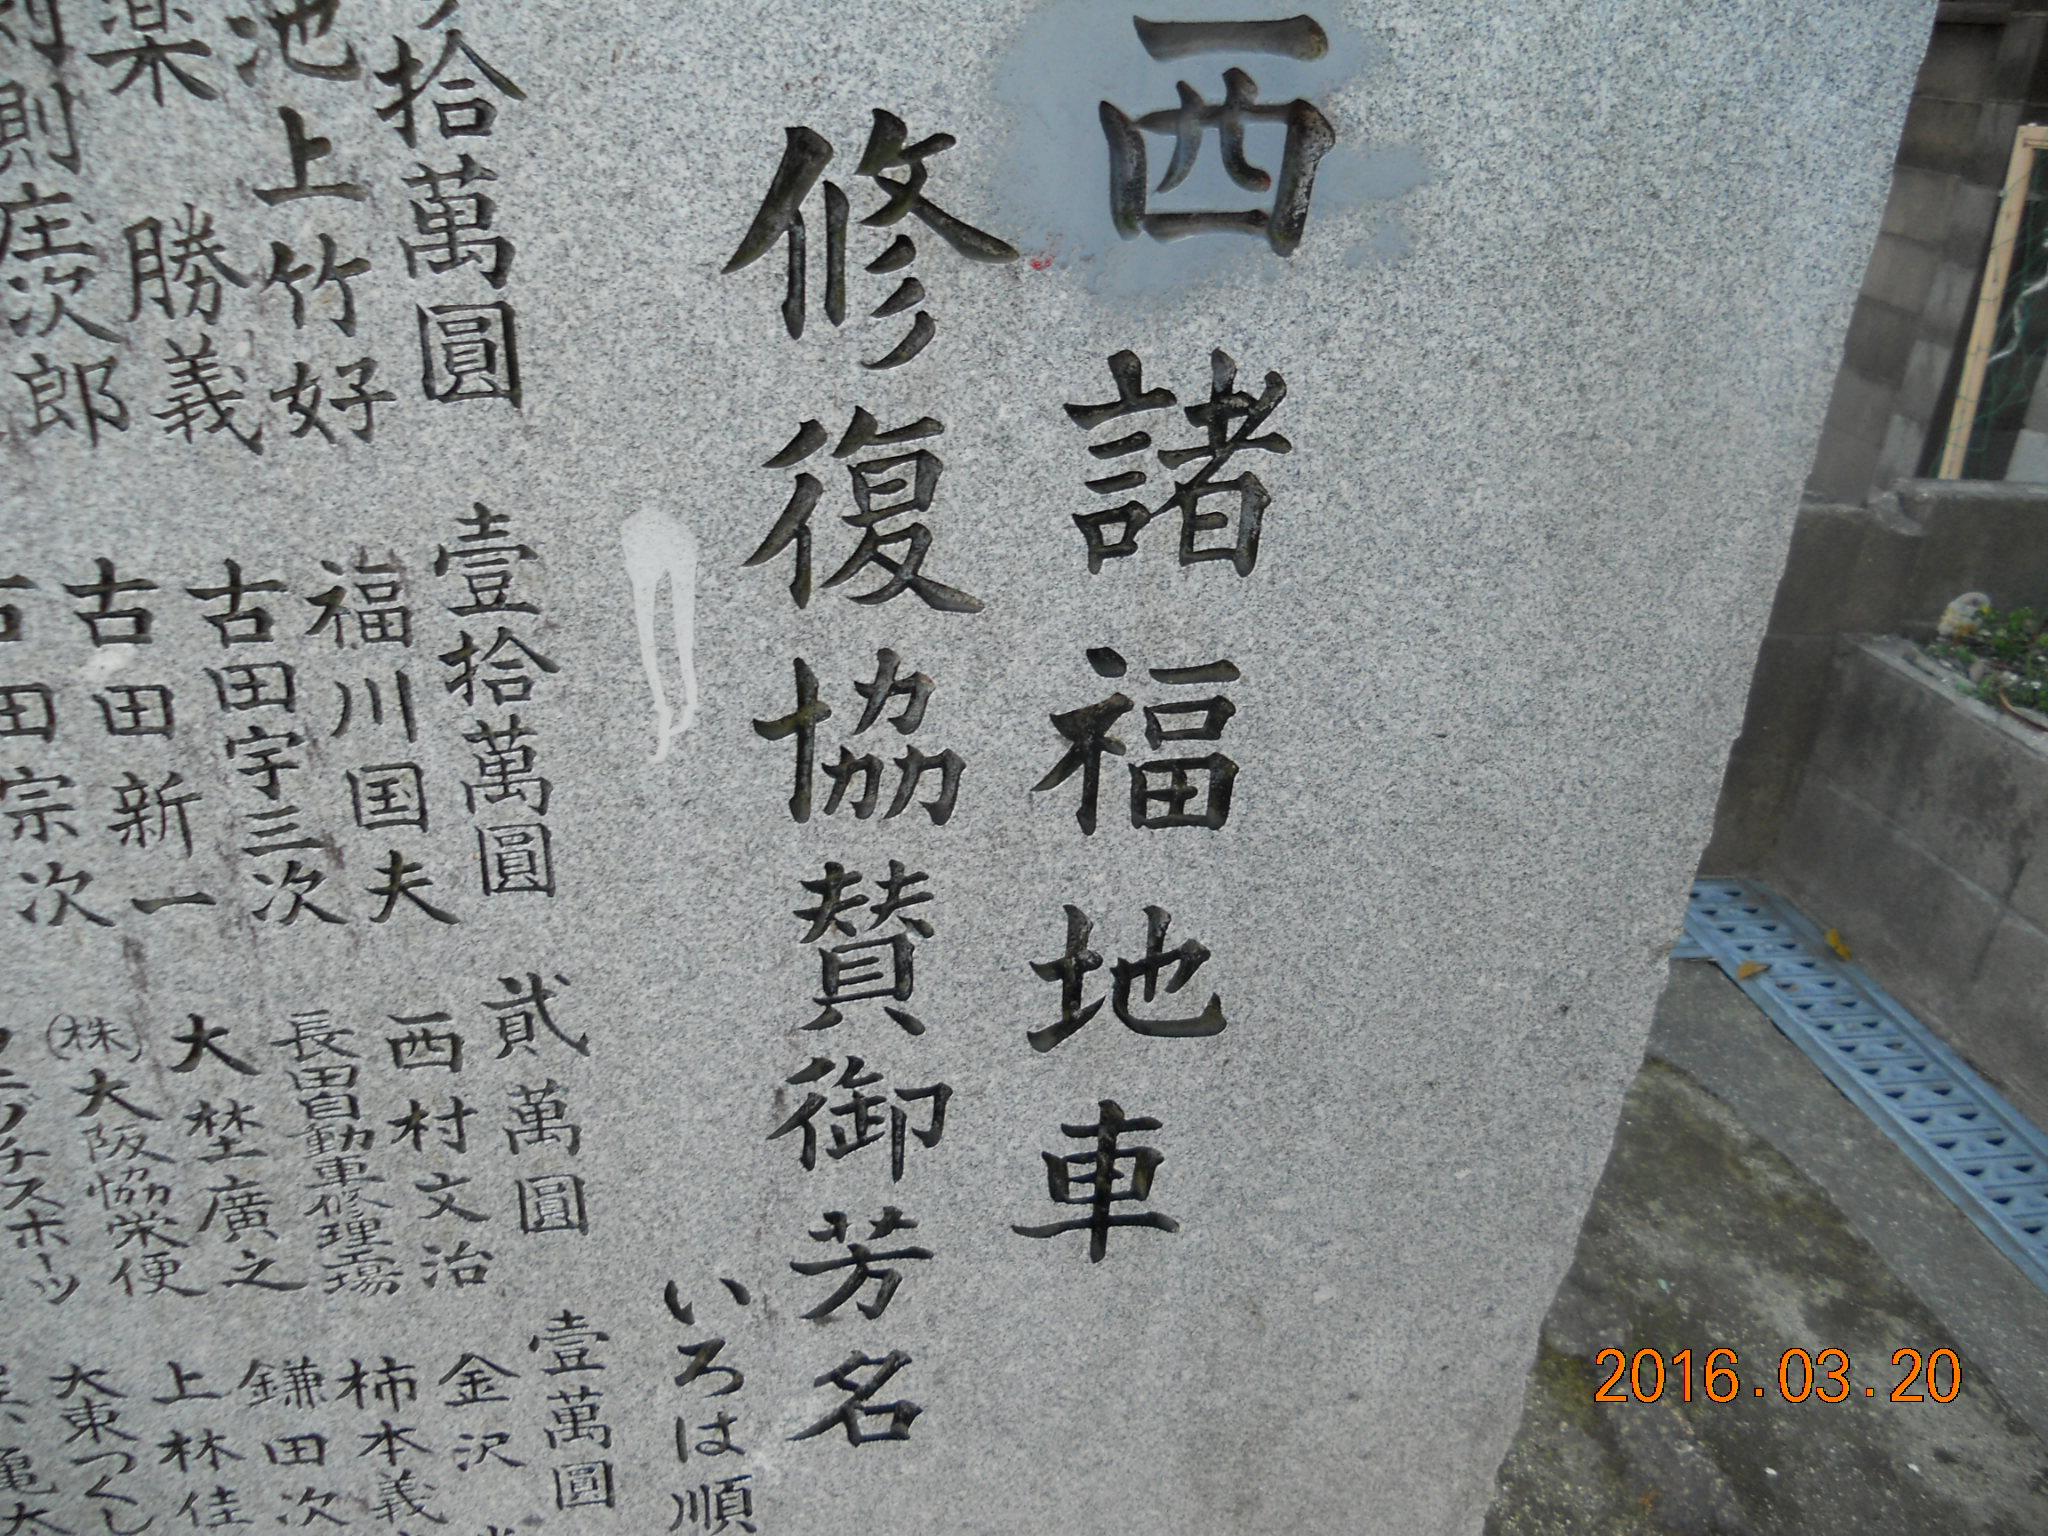 西諸福地車
修復協賛御芳名
いろは順
拾萬圓
池上竹好
楽 勝義
則庄次郎
壹拾萬圓
福川国夫
古田宇三次
古田新一
古田宗次
貳萬圓
西村文治
長田自動車修理工場
大埜廣之
(株)大阪協栄便
壹萬圓
金沢
柿本義
鎌田次
上林佳
大東つくし
2016.03.20